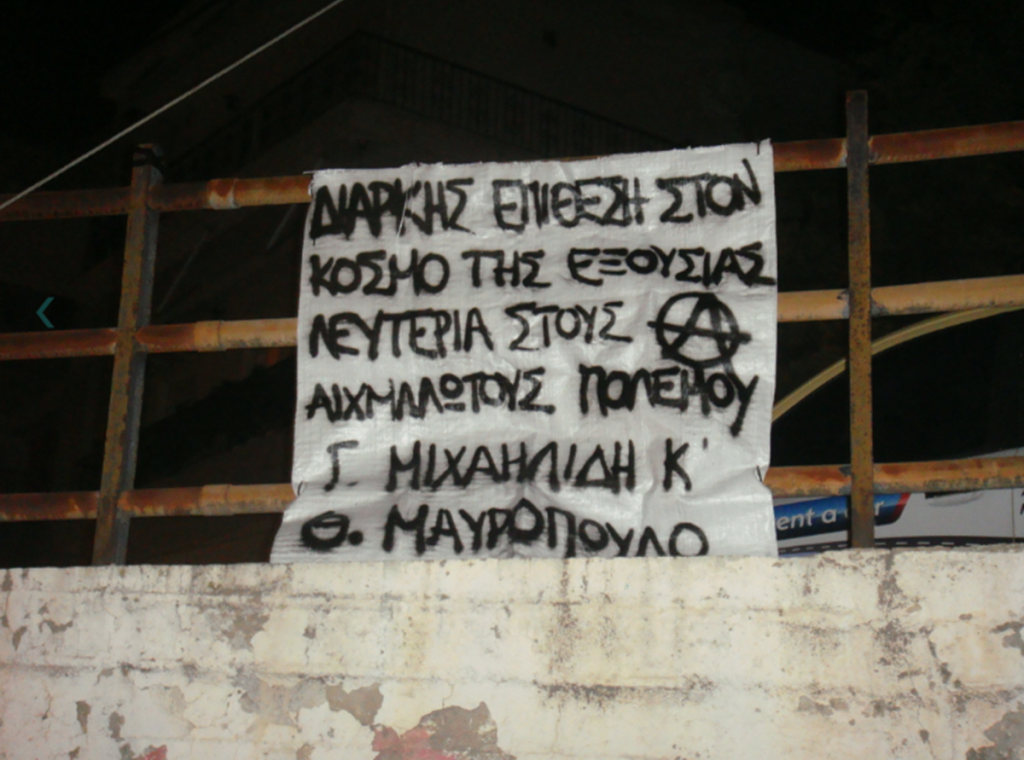 ΔΙΑΡΚΗΣ ΕΠΙΘΕΣΗ ΣΤΟΝ
ΚΟΣΜΟ ΤΗΣ ΕΞΟΥΣΙΑΣ
ΛΕΥΤΕΡΙΑ ΣΤΟΥΣ Ⓐ
ΑΙΧΜΑΛΩΤΟΥΣ ΠΟΛΕΜΟΥ
Γ. ΜΙΧΑΗΛΙΔΗ Κ'
Θ. ΜΑΥΡΟΠΟΥΛΟ
ent a car